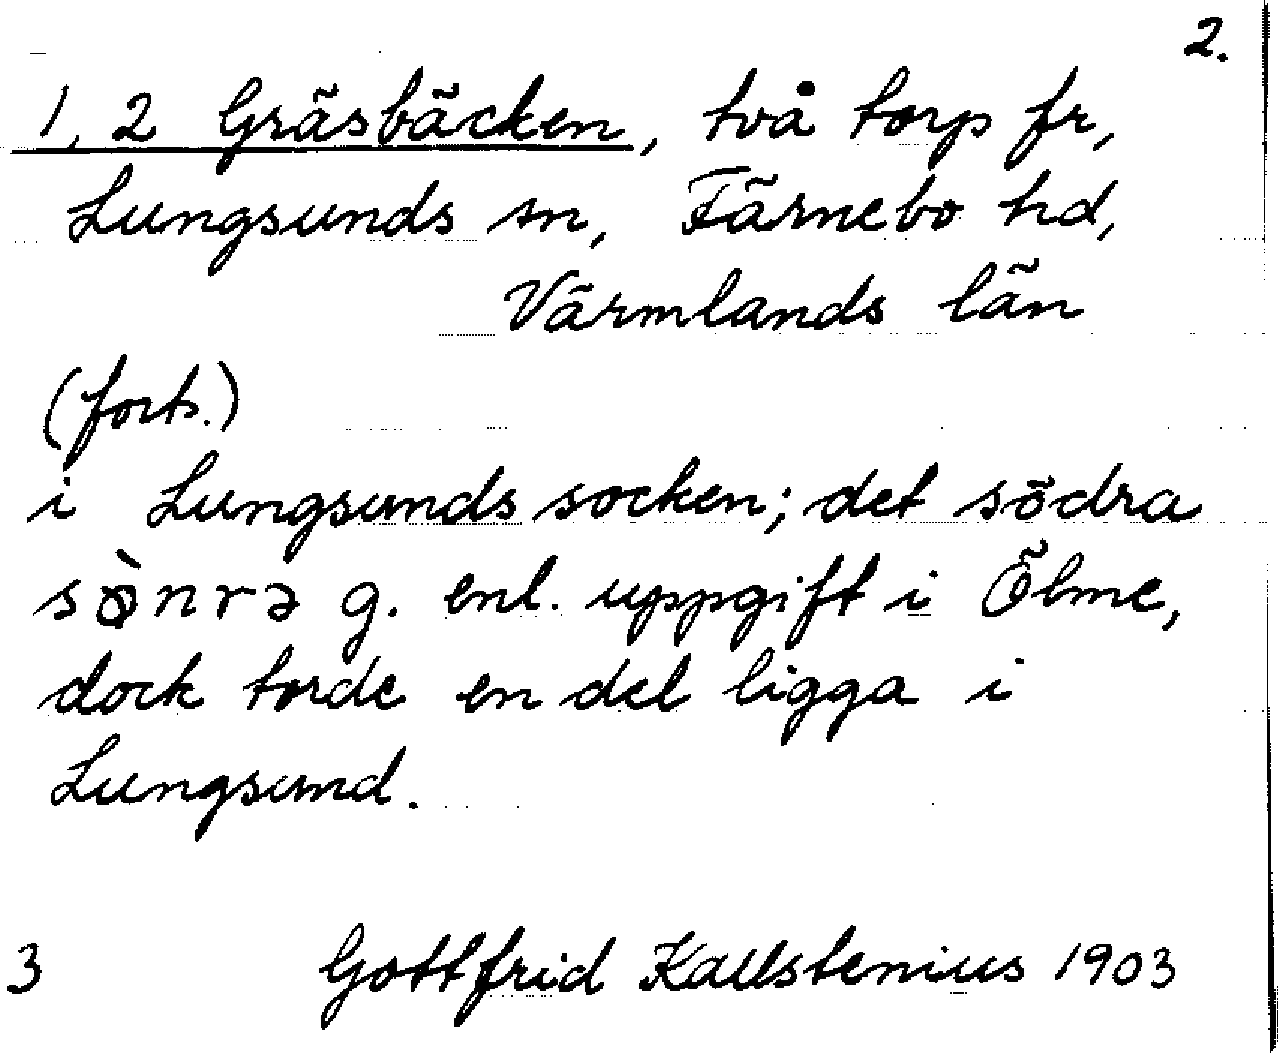 2.
1, 2 Gräsbäcken, två torp fr,
Lungsunds sn, Färnebo hd,
Värmlands län
(forts.)
i Lungsunds socken; det södra
sö̀nrə g. enl. uppgift i Ölme,
dock torde en del ligga i
Lungsund.
3 Gottfrid Kallstenius 1903